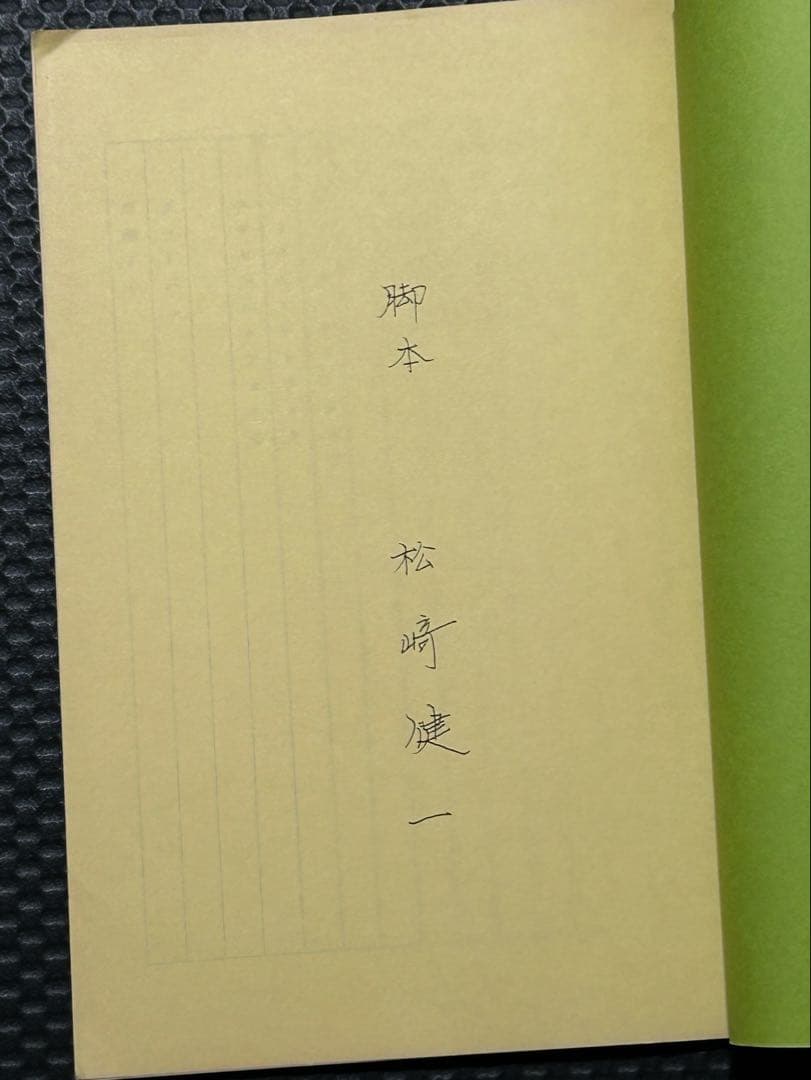 脚本　松﨑健一